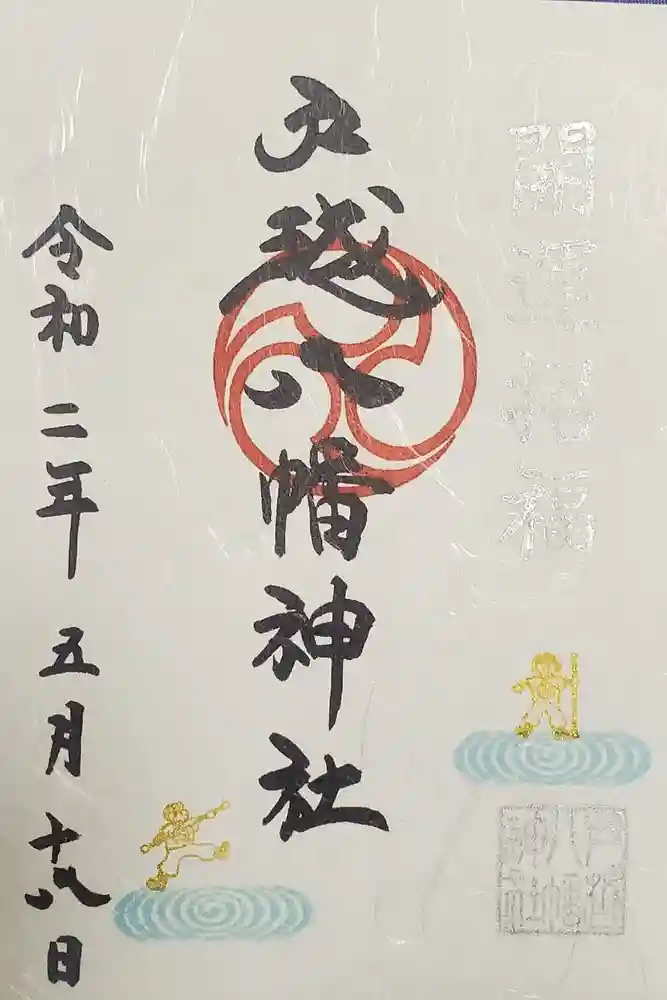 開運招福
戸越八幡神社
令和二年五月十八日